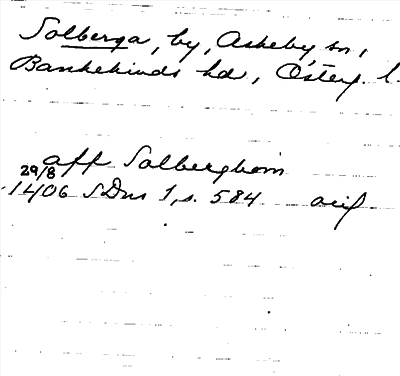 Solberga, by, Askeby sn,
Bankekinds hd, Österg. l.
aff Solberghom
29/8
1406 SDns 1, s. 584 orig